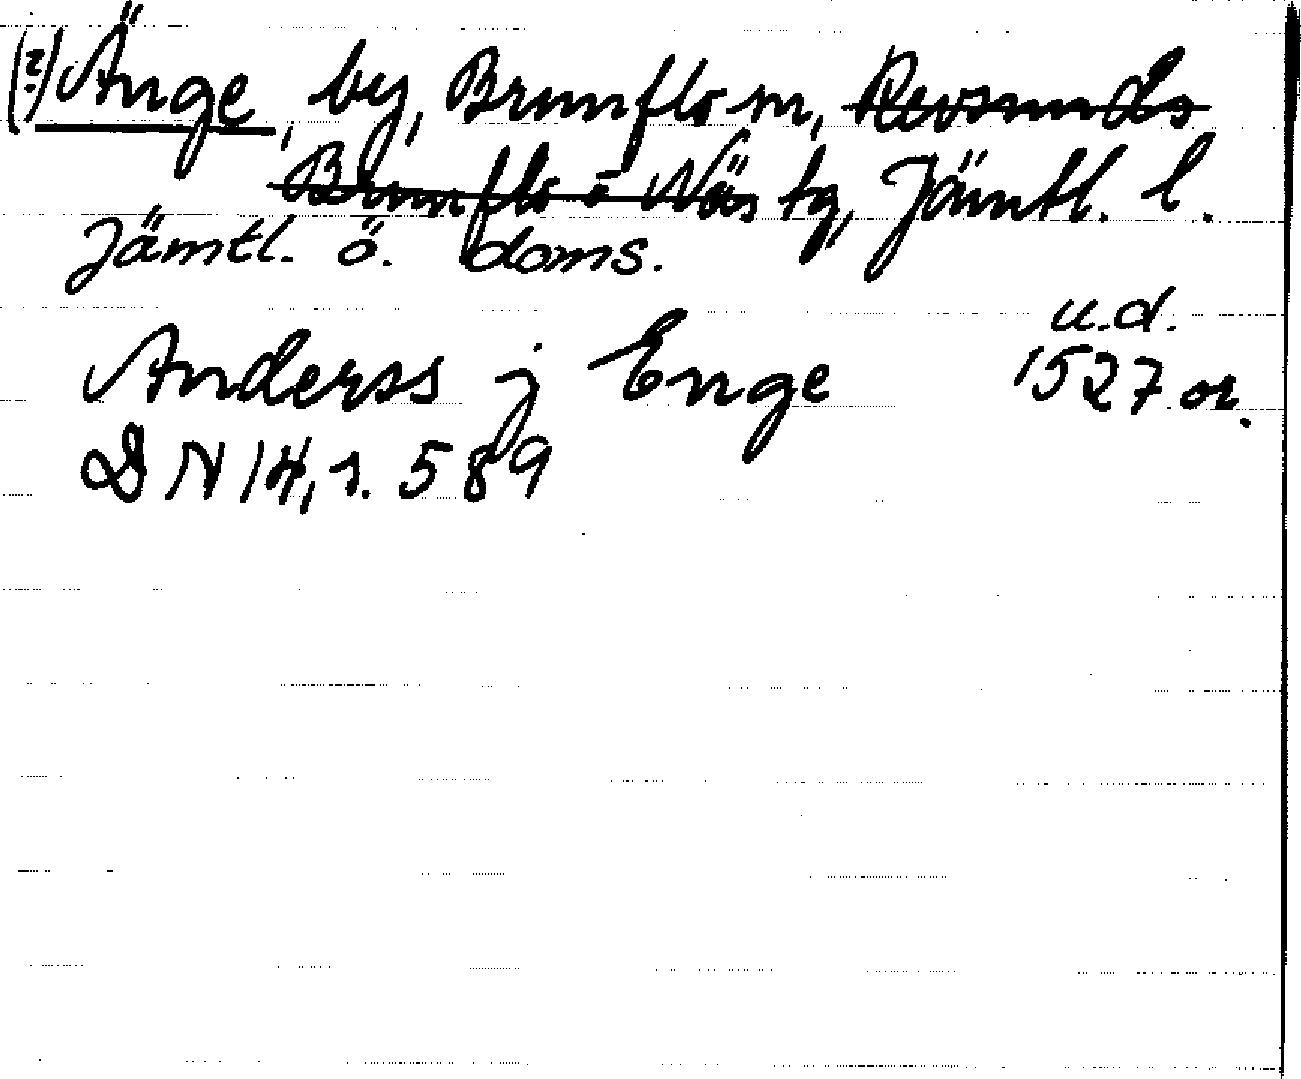 (?) Änge, by, Brunflo sn, Revsunds
Brunflo o Näs tg, Jämtl. l.
Jämtl. ö. doms.
u.d.
Anderss j Enge 1527 or.
DN 14, s. 589